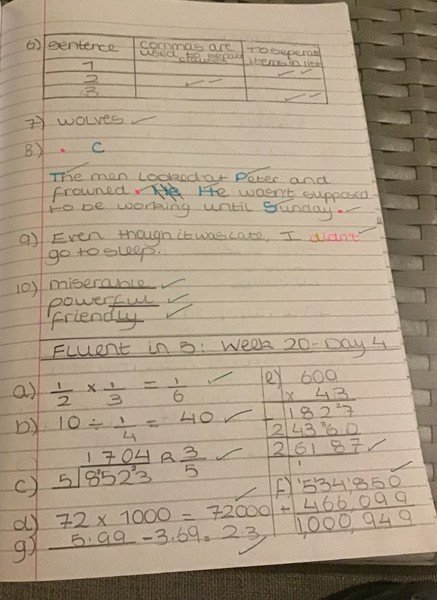 6) Sentence | commas are used to | To seperate items in list
1 ✓✓
2 ✓✓
3 ✓✓
7) wolves ✓
8) . C
The men looked at Peter and
frowned. He He wasn't supposed
to be working until Sunday.
9) Even though it was late, I didn't
go to sleep.
10) miserable ✓
powerful ✓
friendly ✓
Fluent in 5: Week 20 - Day 4
a) 1/2 × 1/3 = 1/6 ✓
b) 10 ÷ 1/4 = 40 ✓
1704 R 3/5 ✓
c) 5 8523
d) 72 × 1000 = 72000 ✓
g) 5.99 - 3.69 = 2.3 ✓
e) 609
× 43
1827
24360
26187 ✓
f) 534,850 ✓
+ 466,099
1,000,949